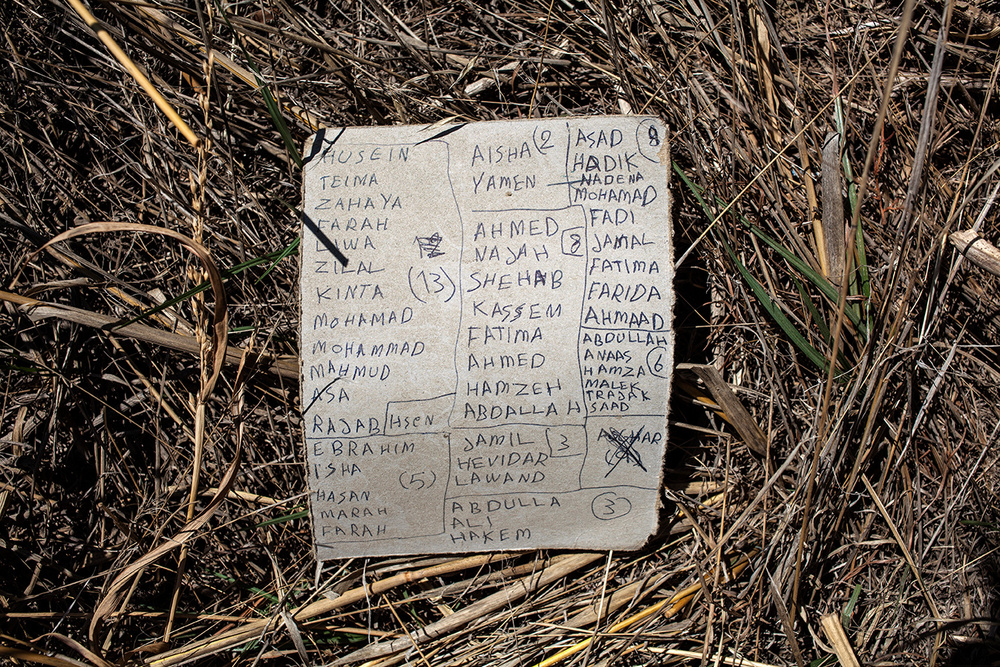 HUSEIN
TEIMA
ZAHAYA
FARAH
LIWA
ZILAL
KINTA (13)
MOHAMAD
MOHAMMAD
MAHMUD
ASA
RAJAB HSEN
EBRAHIM
ISHA
(5)
HASAN
MARAH
FARAH
AISHA (2
YAMEN
AHMED
NAJAH 8
SHEHAB
KASSEM
FATIMA
AHMED
HAMZEH
ABDALLAH
JAMIL 3
HEVIDAR
LAWAND
ABDULLA 3
ALI
HAKEM
ASAD 8
HADIK
NADENA
MOHAMAD
FADI
JAMAL
FATIMA
FARIDA
AHMAAD
ABDULLAH
ANAAS
HAMZA 6
MALEK
TRAJAK
SAAD